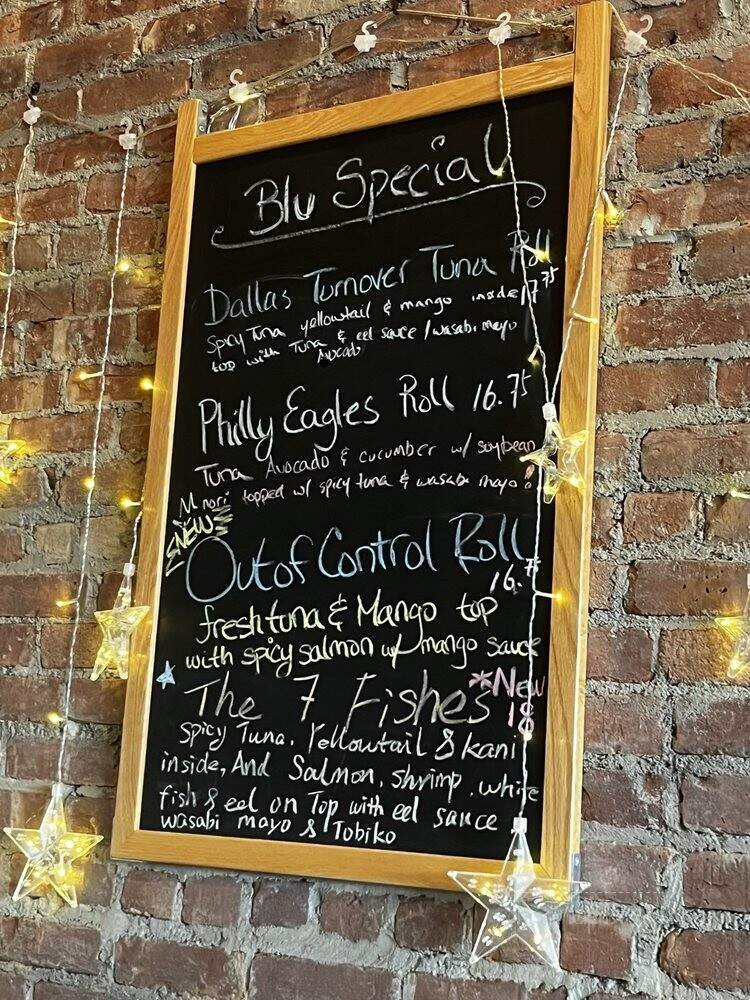 Blu Special
Dallas Turnover Tuna Roll
Spicy Tuna yellowtail & mango inside 17.75
top with Tuna & eel sauce / wasabi mayo
Avocado
Philly Eagles Roll 16.75
Tuna Avocado & cucumber w/ soybean
nori topped w/ spicy tuna & wasabi mayo
NEW
Out of Control Roll
16.75
fresh tuna & Mango top
with spicy salmon w/ mango sauce
The 7 Fishes *New
18
Spicy Tuna, Yellowtail & kani
inside, And Salmon, shrimp, white
fish & eel on Top with eel sauce
wasabi mayo & Tobiko